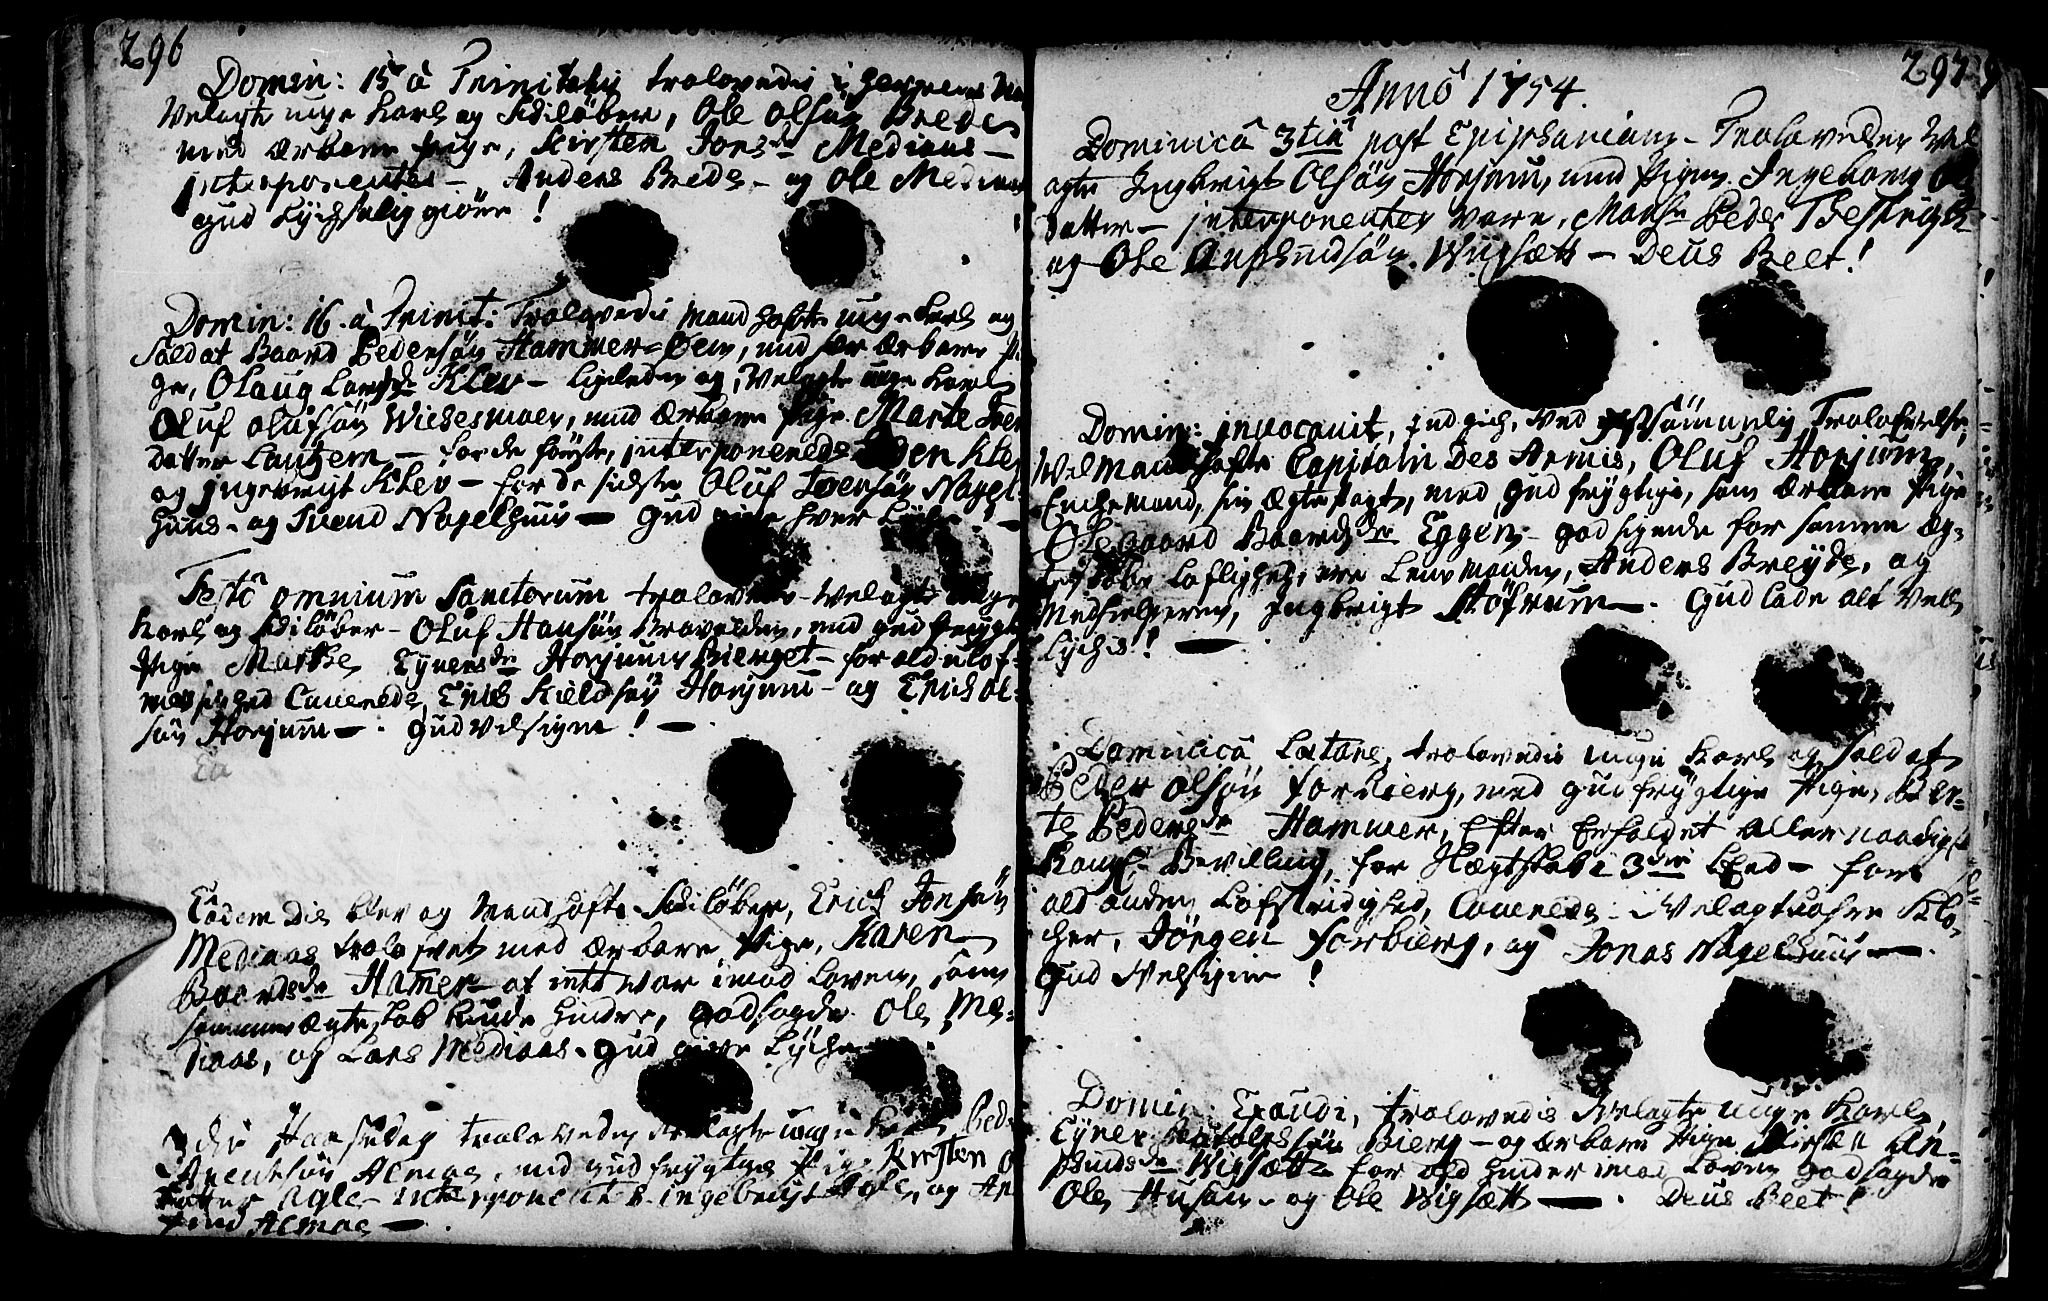 296
Domin: 15 à Trinitatis trolovedis i Herrens
Velagte unge Karl og Skiløber, Ole Olsøn Brede
med ærbare Pige, Kirsten Jonsdr Mediaas —
interponentes — Anders Brede — og Ole Mediaas
Gud Lychsalig giøre!
Domin: 16. à Trinit: Trolovedis Mandhafte unge Karl og
Soldat Baard Pedersøn Hammer-Øen, med sær ærbare Pi-
ge, Olaug Larsdr Klev — ligeledes og, Velagte unge Karl
Oluf Olufsøn Wichesmoen, med ærbare Pige Marte Iver
datter Lautzem — for de første, interponerede Peder Klev
og Ingebrigt Klev — for de sidste Oluf Iversøn Nagel-
huus — og Svend Nagelhuus — Gud give hver Lyche —
Festô omnium Sanctorum trolovedis Velagte unge
Karl og Skiløber — Oluf Hansøn Bravolden, med Gudfrygtige
Pige Marthe Eynersdr Horjums Bierget — for ald ulof-
messighed Caverede, Erich Kieldsøn Horjum — og Erich Ol-
søn Horjum —. Gud velsigne! —
Eodem Die blev og Mandhafte Skiløber, Erich Jonsøn
Mediaas trolovet med ærbare Pige, Karen
Baardsdr Hamer — at intet var imod Loven, som
samme ægteskab kunde hindre, godsagde Ole Me-
diaas, og Lars Mediaas. Gud give Lyche
3die Paaskedag trolovedes Velagte unge Karl Peder
Arentsøn Almaas, med gudfrygtige Pige Kirsten O
datter Agle — interponentes Ingebrigt Agle, og An
find Almaas —.
297
Annô 1754.
Dominicâ 3tiâ post Epiphaniam — Trolovedes Vel
agte Ingbrigt Olsøn Horjum, med Pigen Ingeborg Ols
datter — interponentes vare, Monsr Peder Thestrup
og Ole Anphindsøn Wigsætt — Deus Beet!
Domin: invocavit, indgich, ved Trolovelse,
Vel Mandhafte Capitain Des Armis, Oluf Horjum,
Enchemand, sin ægtepagt, med Gudfrygtige, som ærbare Pige
Olegaard Baardsdr Eggen — godsigende for samme æg-
teskabs Loflighed, vare Lensmanden, Anders Breyde, og
Medhielperen, Ingbrigt Støfrum —. Gud lade alt vel
Lyches! —
Dominicâ Lætare, trolovedis unge Karl og Soldat
Peder Olsøn Forbierg, med gudfrygtige Pige, Ber-
te Pedersdr Hammer, Efter Erholdet allernaadigst
Kongl: Bevilling, for Hægtskab i 3die Leed — for
ald anden Lofstridighed, Caverede Velagtachtede Klo-
cher, Jörgen Forbierg, og Jonas Nagelhuus —.
Gud Velsigne!
Domin: Exaudi, trolovedis Velagte unge Karl
Eyner Bierg — og ærbare Pige Kirsten An-
phindsdr Wigsætt for ald hinder imod Loven godsagde
Ole Husan — og Ole Wigsætt —. Deus Beet!